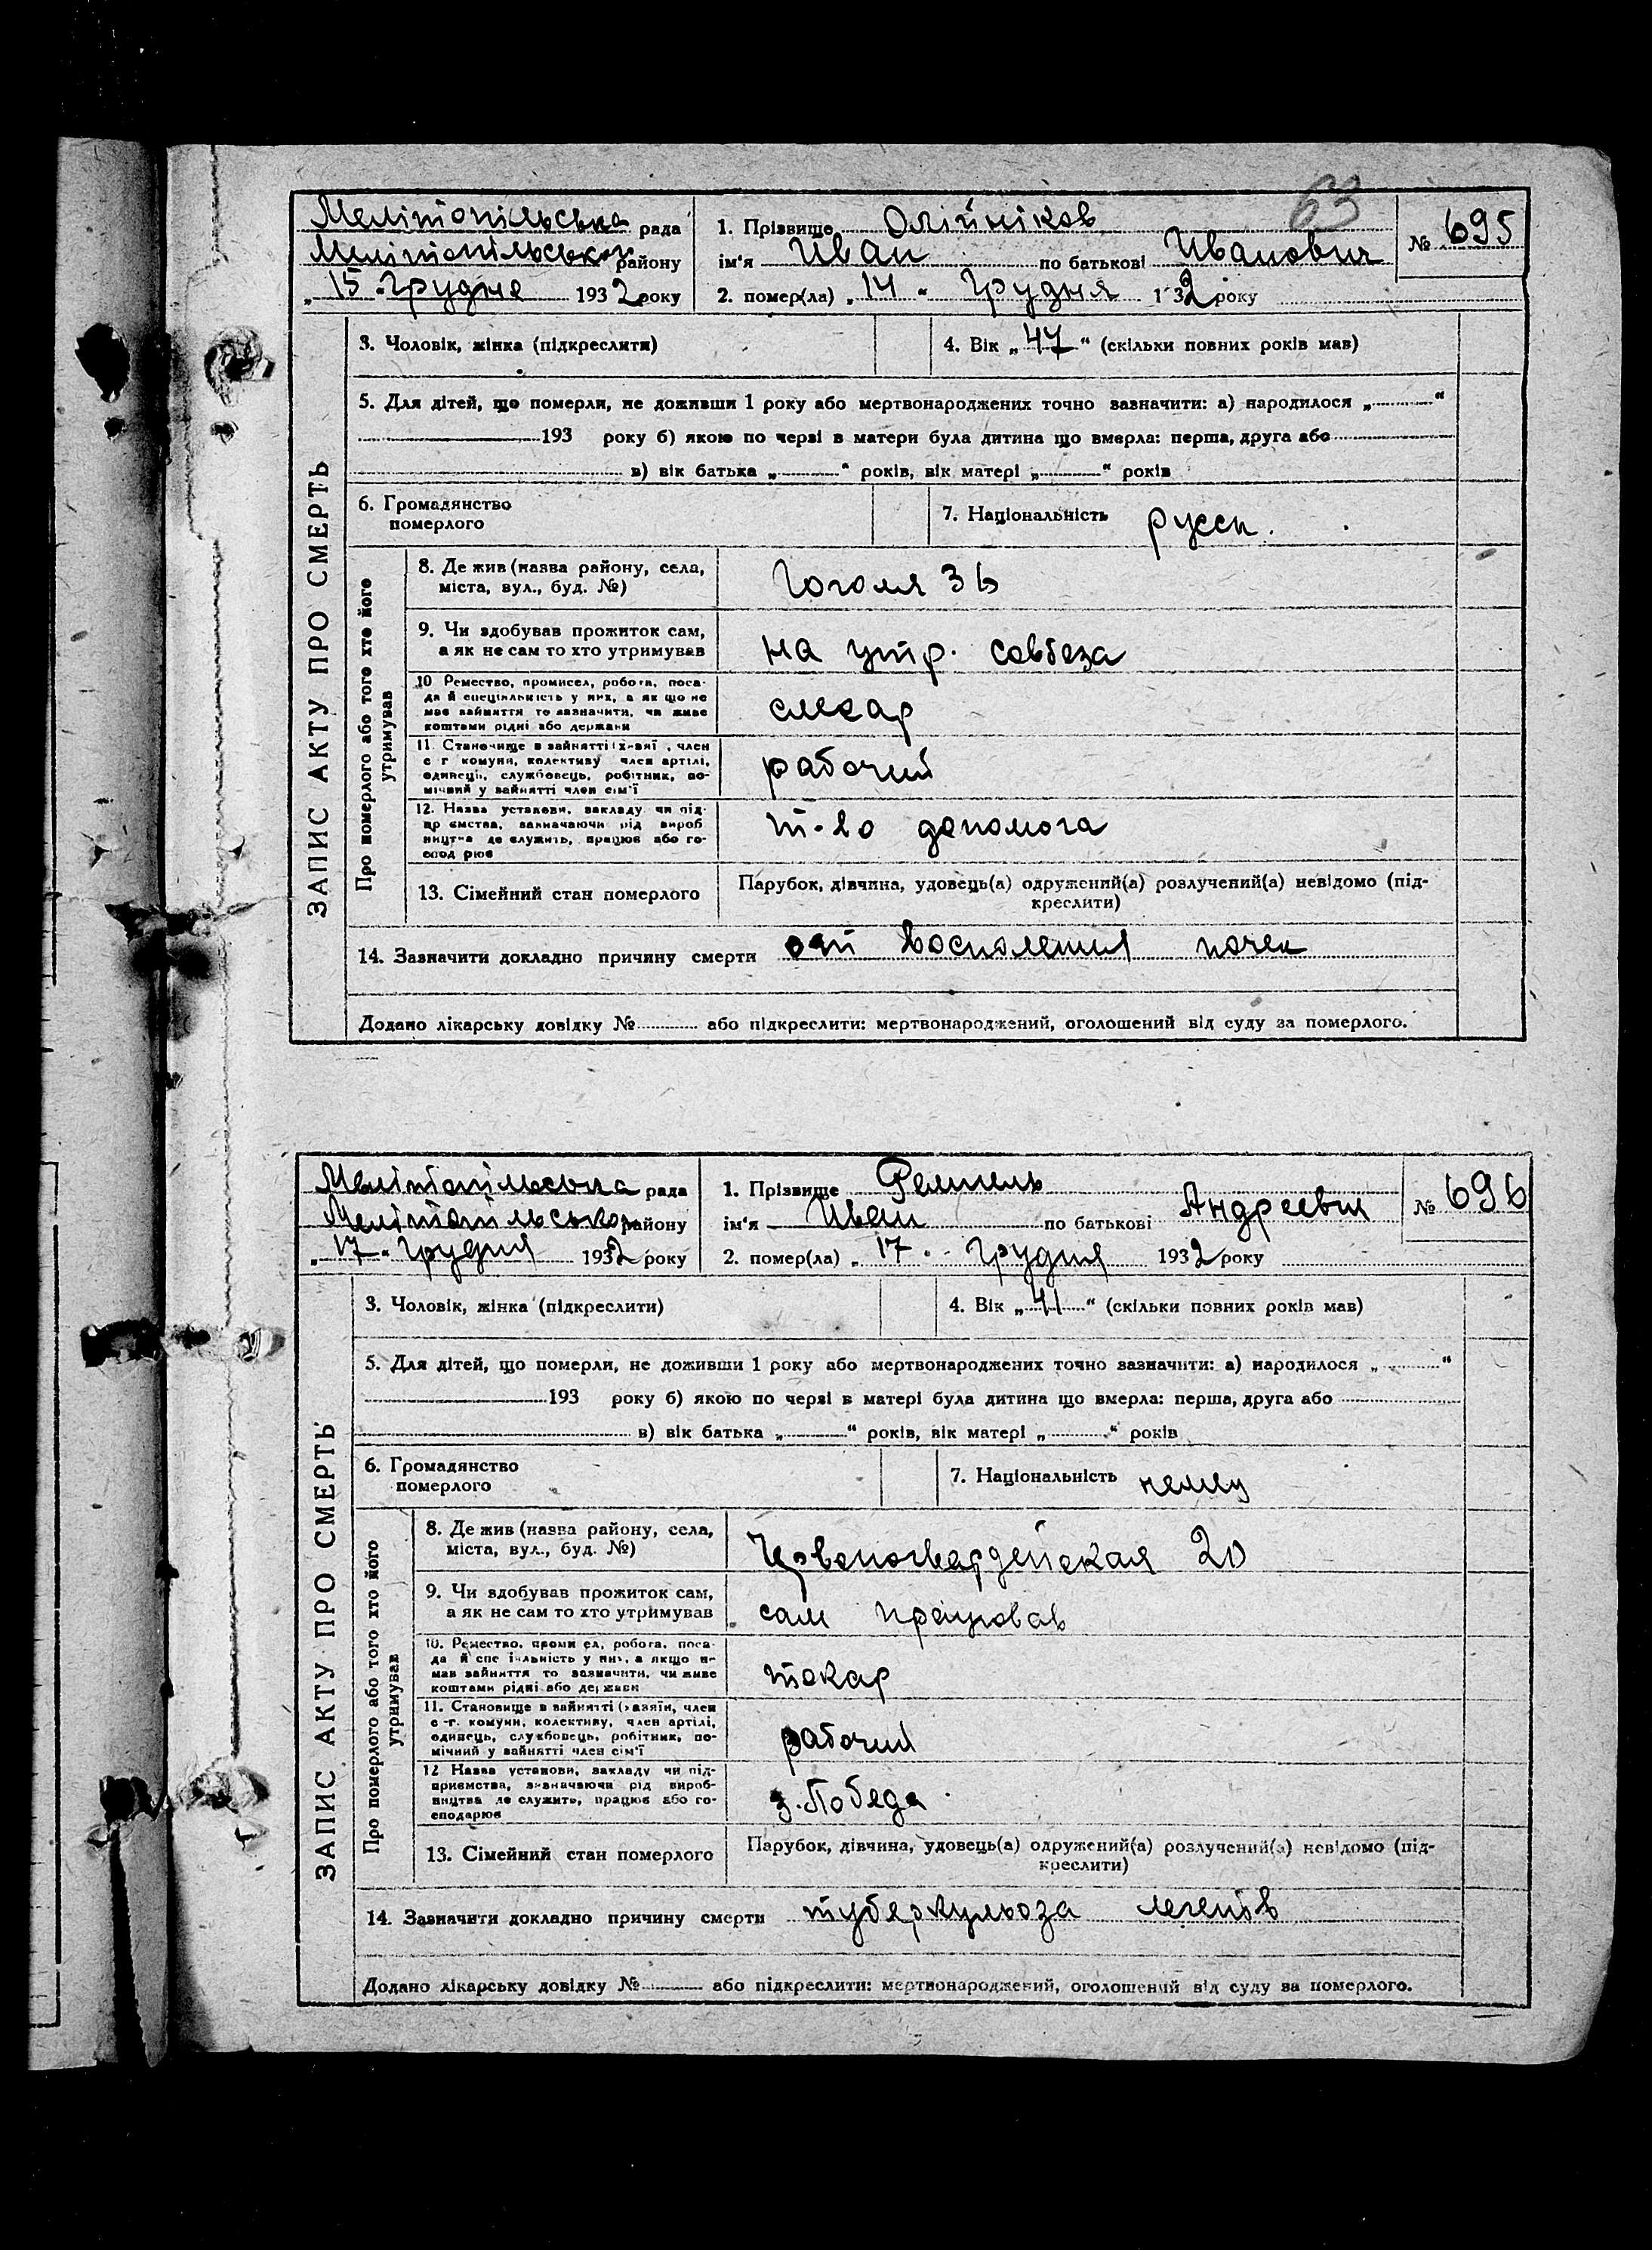 63
Мелітопільська рада
Мелітопільськог району
„15„ Грудня 1932 року
1. Прізвище Олійніков
ім'я Иван по батькові Иванович
2. помер(ла) „14„ Грудня 1932 року
№ 695
ЗАПИС АКТУ ПРО СМЕРТЬ
3. Чоловік, жінка (підкреслити)
4. Вік „47“ (скільки повних років мав)
5. Для дітей, що померли, не доживши 1 року або мертвонароджених точно зазначити: а) народилося „ “
193 року б) якою по черзі в матери була дитина що вмерла: перша, друга або
в) вік батька „ “ років, вік матері „ “ років
6. Громадянство
померлого
7. Національність русск.
Про померлого або того хто його
утримував
8. Де жив (назва району, села,
міста, вул., буд. №)
Гоголя 36
9. Чи здобував прожиток сам,
а як не сам то хто утримував
на утр. совбеза
10 Ремество, промисел, робота, поса-
да й спеціяльність у них, а як що не
має зайняття то зазначити, чи живе
коштами рідні або держави
слесар
11. Становище в зайнятті (х-зяї , член
с г комуни, колективу член артілі,
одинець, службовець, робітник, по-
мічний у зайнятті член сім'ї
рабочий
12. Назва установи, закладу чи під-
пр ємства, зазначаючи рід вироб
ництва де служить, працює або го-
спод рює
т-во допомога
13. Сімейний стан померлого
Парубок, дівчина, удовець(а) одружений(а) розлучений(а) невідомо (під-
креслити)
14. Зазначити докладно причину смерти от восполения почек
Додано лікарську довідку № або підкреслити: мертвонароджений, оголошений від суду за померлого.
Мелітопільська рада
Мелітопільськог району
„17„ Грудня 1932 року
1. Прізвище
ім'я Иван по батькові Андреевич
2. помер(ла) „17„ Грудня 1932 року
№ 696
ЗАПИС АКТУ ПРО СМЕРТЬ
3. Чоловік, жінка (підкреслити)
4. Вік „41“ (скільки повних років мав)
5. Для дітей, що померли, не доживши 1 року або мертвонароджених точно зазначити: а) народилося „ “
193 року б) якою по черзі в матері була дитина що вмерла: перша, друга або
в) вік батька „ “ років, вік матері „ “ років
6. Громадянство
померлого
7. Національність немец
Про померлого або того хто його
утримував
8. Де жив (назва району, села,
міста, вул., буд. №)
Червеногвардейская 20
9. Чи здобував прожиток сам,
а як не сам то хто утримував
сам працював
10. Ремество, проми ел, робота, поса-
да й спе іяльність у них, а якщо н-
має зайняття то зазначити, чи живе
коштами рідні або держави
токар
11. Становище в зайнятті (хазяїн, член
с-г. комуни, колективу, член артілі,
одинець, службовець, робітник, по-
мічний у зайнятті член сім'ї
рабочий
12 Назва установи, закладу чи під-
приємства, зазначаючи рід вироб-
ництва де служить, працює або го-
сподарює
з. Победа
13. Сімейний стан померлого
Парубок, дівчина, удовець(а) одружений(а) розлучений(а) невідомо (під-
креслити)
14. Зазначити докладно причину смерти туберкульоза легенів
Додано лікарську довідку № або підкреслити: мертвонароджений, оголошений від суду за померлого.